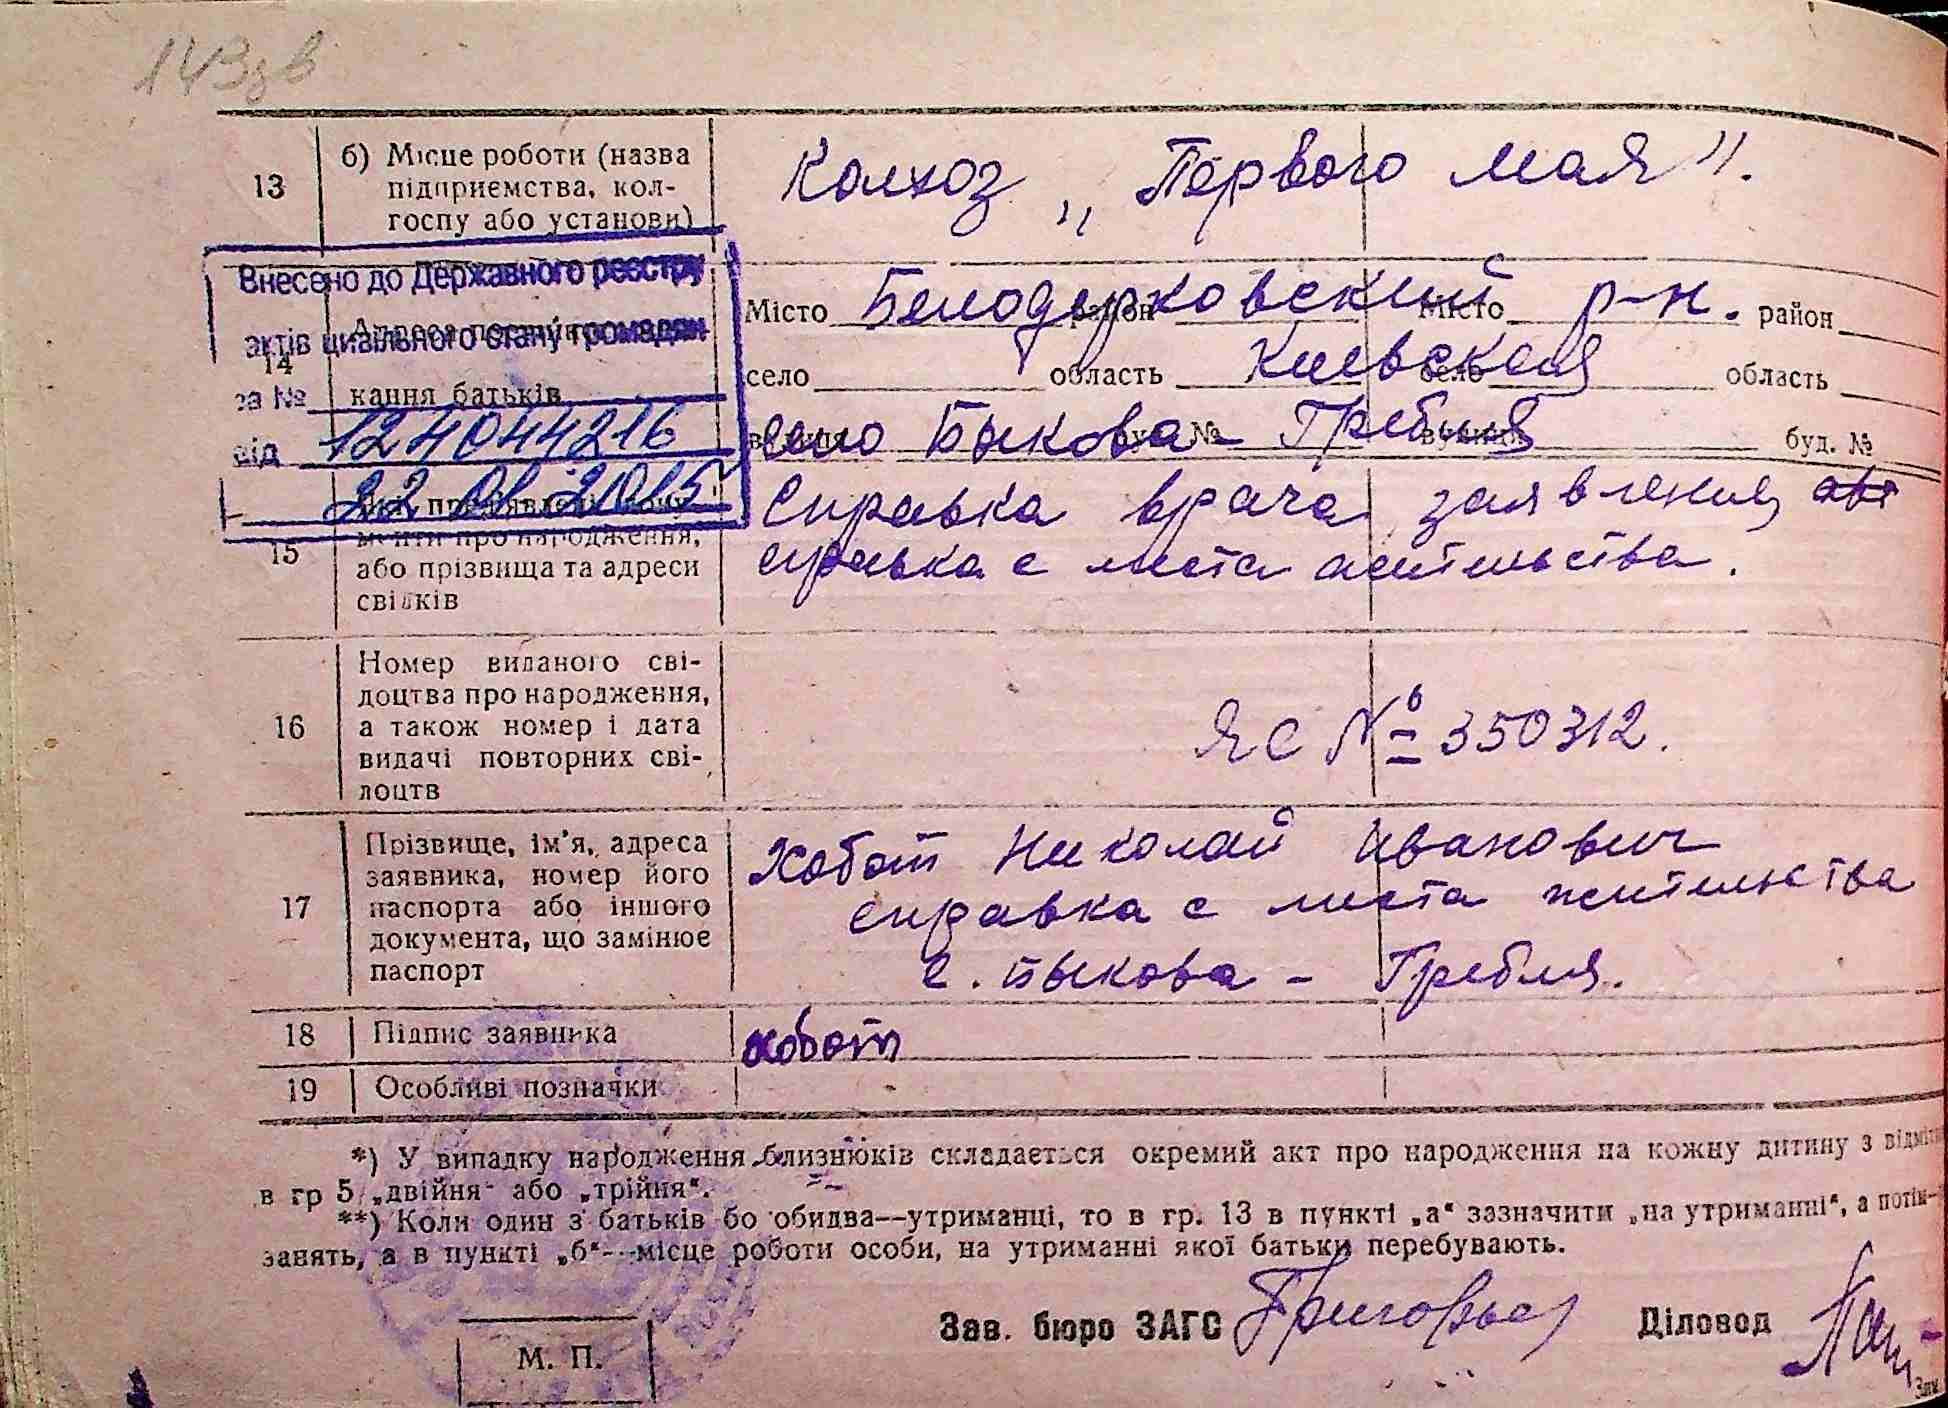 143зв
13 б) Місце роботи (назва
підприємства, кол-
госпу або установи)
Колхоз „Первого мая".
Внесено до Державного реєстру
актів цивільного стану громадян
за №
124044216
від
22 01 2015
14
кання батьків
Місто Белоцерковский р-н. Місто район
село область Киевская село область
село Быкова-Гребля буд. №
15
менти про народження,
або прізвища та адреси
свідків
Справка врача заявления
справка с места жительства.
16 Номер виданого сві-
доцтва про народження,
а також номер і дата
видачі повторних сві-
доцтв
ЯС № 350312.
17 Прізвище, ім'я, адреса
заявника, номер його
паспорта або іншого
документа, що замінює
паспорт
Хобот Николай Иванович
справка с места жительства
с. Быкова - Гребля.
18 Підпис заявника Хобот
19 Особливі позначки
*) У випадку народження близнюків складається окремий акт про народження на кожну дитину з
в гр 5 „двійня" або „трійня".
**) Коли один з батьків бо обидва—утриманці, то в гр. 13 в пункті „а" зазначити „на утриманні", а потім—
занять, а в пункті „б"—місце роботи особи, на утриманні якої батьки перебувають.
Зав. бюро ЗАГС Діловод
М. П.